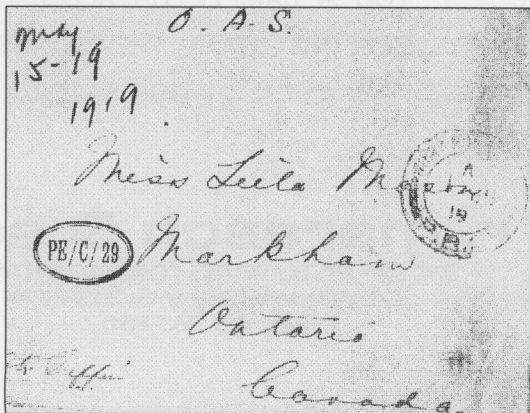 O. A. S.
May
15-19
1919
Miss Leila
PE/C/29 Markham
Ontario
Canada